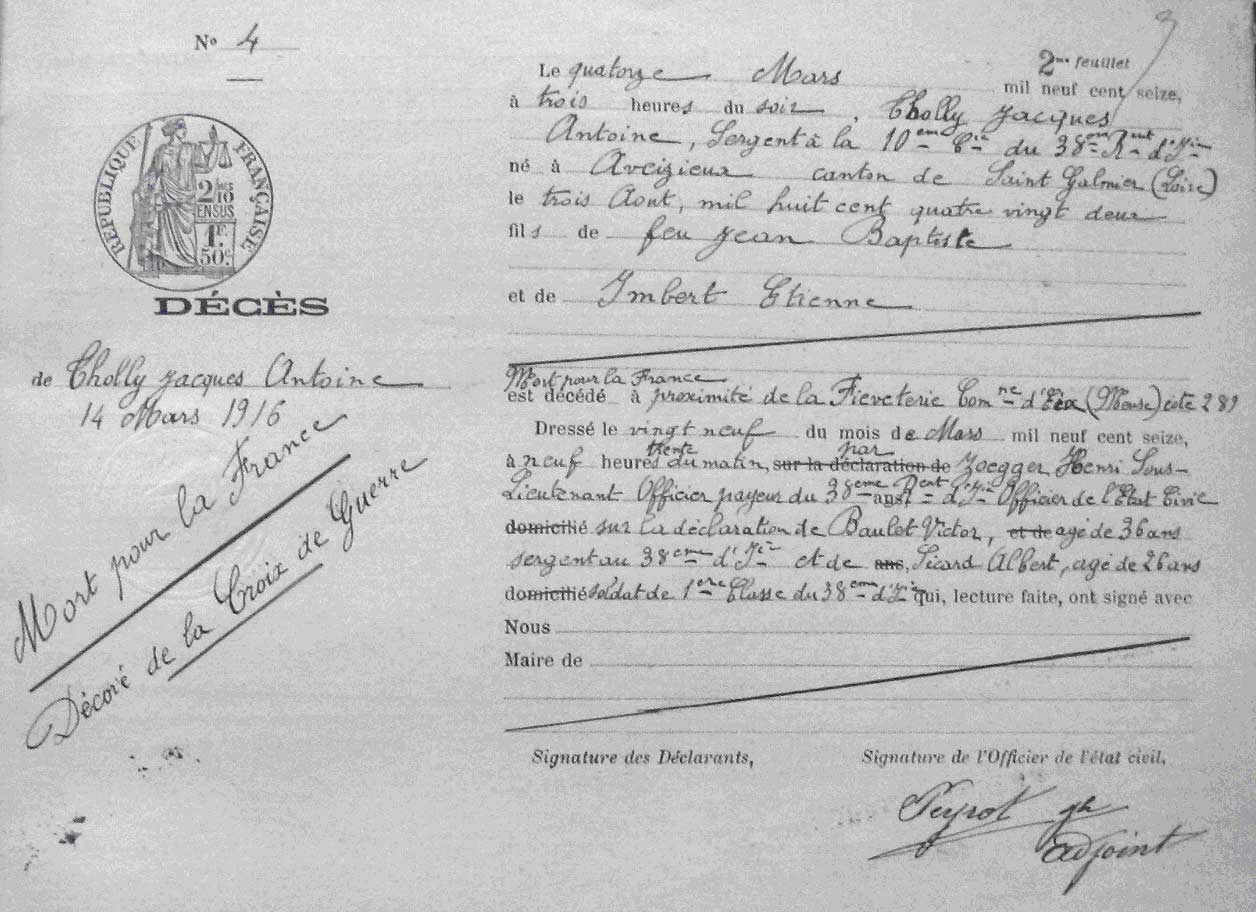 N° 4
RÉPUBLIQUE FRANÇAISE
2/10
EN SUS
1F.
50c.
DÉCÈS
de Cholly Jacques Antoine
14 Mars 1916
Mort pour la France
Décoré de la Croix de Guerre
2me feuillet
Le quatorze Mars mil neuf cent seize,
à trois heures du soir, Cholly Jacques
Antoine, Sergent à la 10eme Cie du 38eme Rment d'Yie
né à Aveizieux canton de Saint Galmier (Loire)
le trois Aout, mil huit cent quatre vingt deux
fils de feu Jean Baptiste
et de Imbert Etienne
Mort pour la France
est décédé à proximité de la Fieveterie Comne d'Eix (Meuse) côte 289
Dressé le vingt neuf du mois de Mars mil neuf cent seize,
à neuf heures trente du matin, sur la déclaration de par Zoegger Henri Sous-
Lieutenant Officier payeur du 38eme ans d'Yie Officier de l'Etat Civil
domicilié sur la déclaration de Baulet Victor, et de agé de 36 ans
sergent au 38eme d'Yie et de ans, Sicard Albert, agé de 26 ans
domicilié soldat de 1ere Classe du 38eme d'Yie qui, lecture faite, ont signé avec
Nous
Maire de
Signature des Déclarants,
Signature de l'Officier de l'état civil,
Peyrot
adjoint